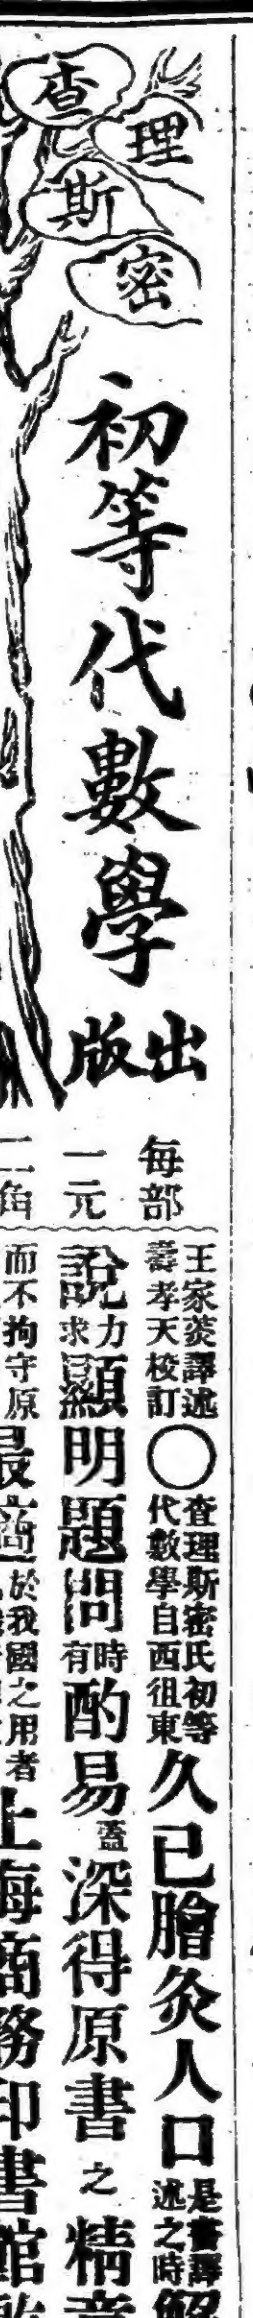 查理斯密
初等代數學
出版
每部
一元
二角
王家菼譯述
壽孝天校訂
〇
查理斯密氏初等
代數學自西徂東
久已膾炙人口
是書譯
述之時
解
說
力
求
顯明題問
時
有
酌易
蓋
深得原書之精意
而不拘守原
最適
於我國之用者
上海商務印書館